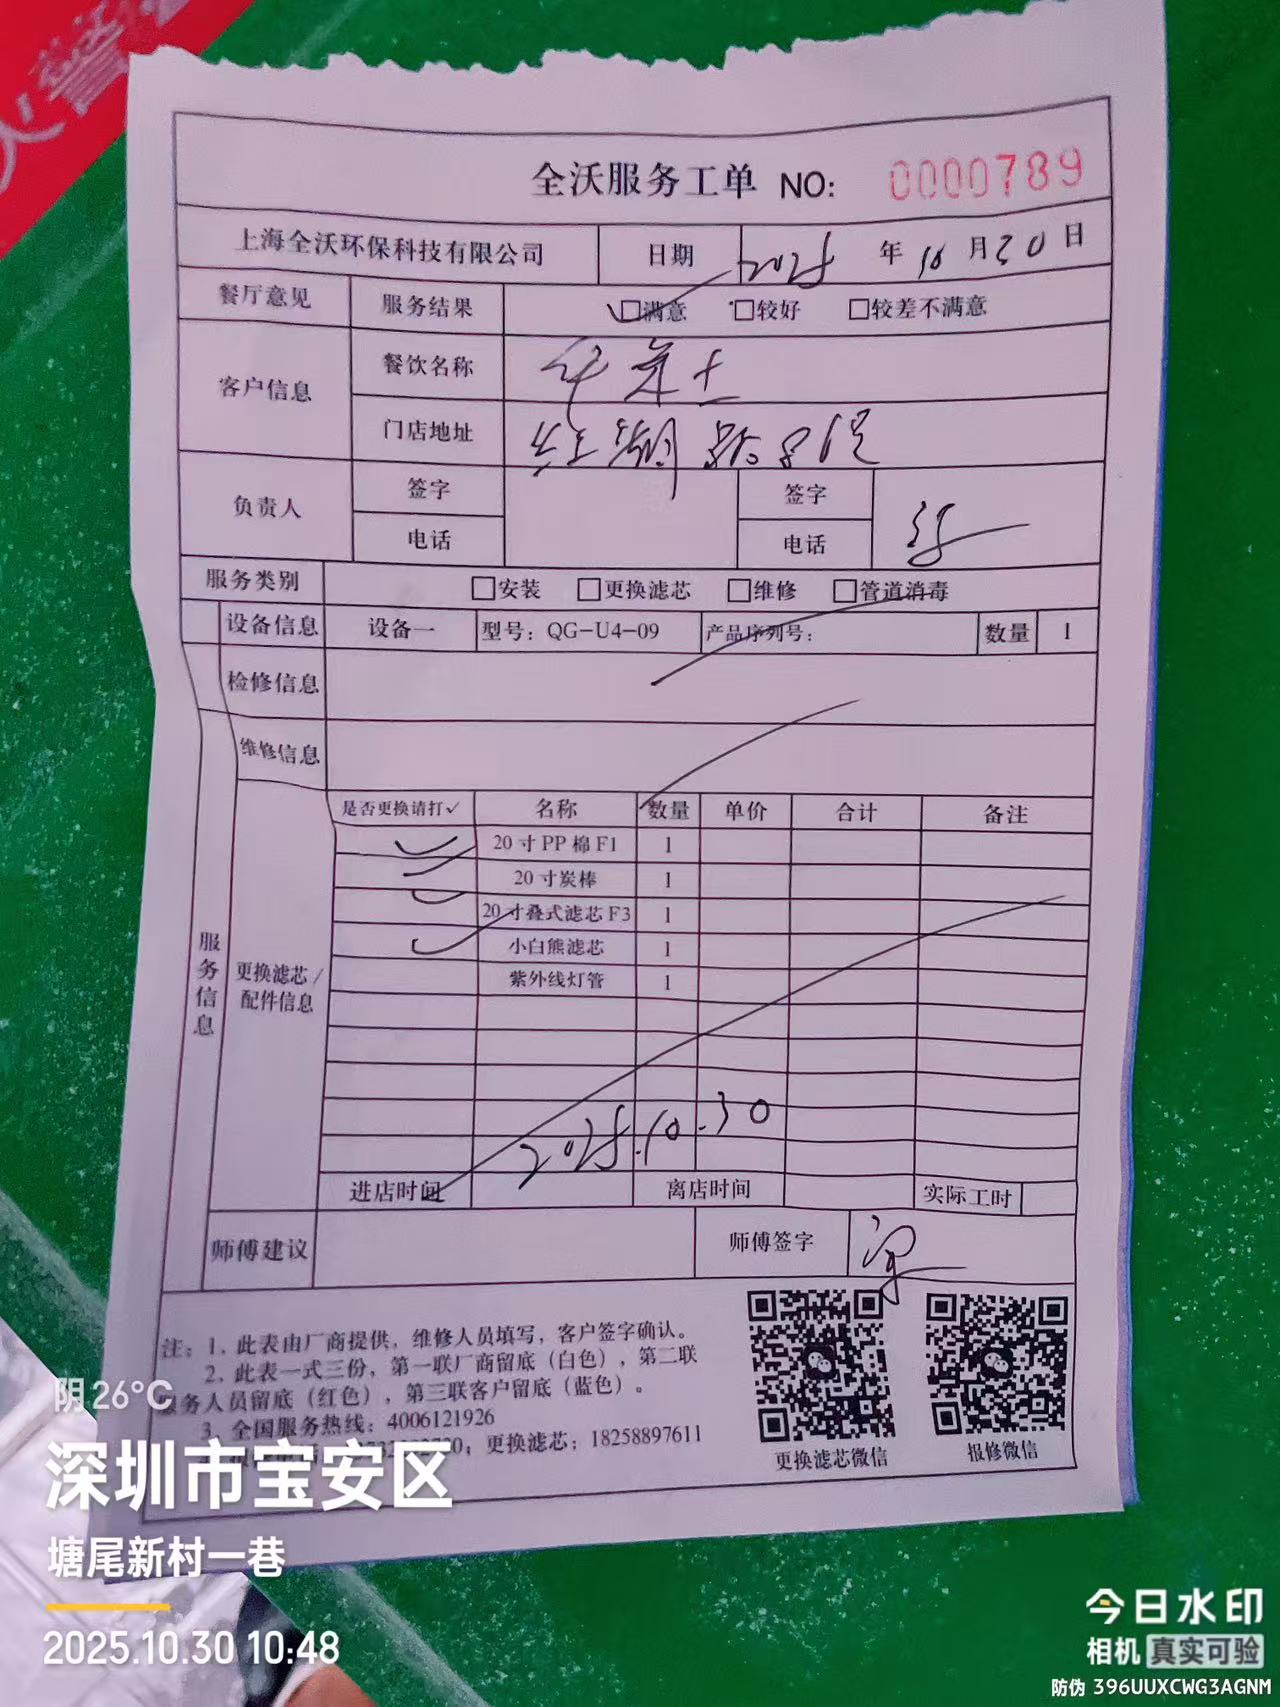 全沃服务工单 NO: 0000789
上海全沃环保科技有限公司 日期 2025 年 10 月 30 日
餐厅意见 服务结果 □满意 □较好 □较差不满意
客户信息 餐饮名称 华莱士
门店地址
负责人 签字 签字
电话 电话
服务类别 □安装 □更换滤芯 □维修 □管道消毒
设备信息 设备一 型号：QG-U4-09 产品序列号： 数量 1
检修信息
维修信息
服务信息
更换滤芯/
配件信息
是否更换请打✓ 名称 数量 单价 合计 备注
✓ 20寸PP棉F1 1
✓ 20寸炭棒 1
✓ 20寸叠式滤芯F3 1
✓ 小白熊滤芯 1
紫外线灯管 1
2025.10.30
进店时间 离店时间 实际工时
师傅建议 师傅签字
注：1，此表由厂商提供，维修人员填写，客户签字确认。
2，此表一式三份，第一联厂商留底（白色），第二联
服务人员留底（红色），第三联客户留底（蓝色）。
3，全国服务热线：4006121926
更换滤芯：18258897611
更换滤芯微信 报修微信
阴 26°C
深圳市宝安区
塘尾新村一巷
2025.10.30 10:48
今日水印
相机 真实可验
防伪 396UUXCWG3AGNM